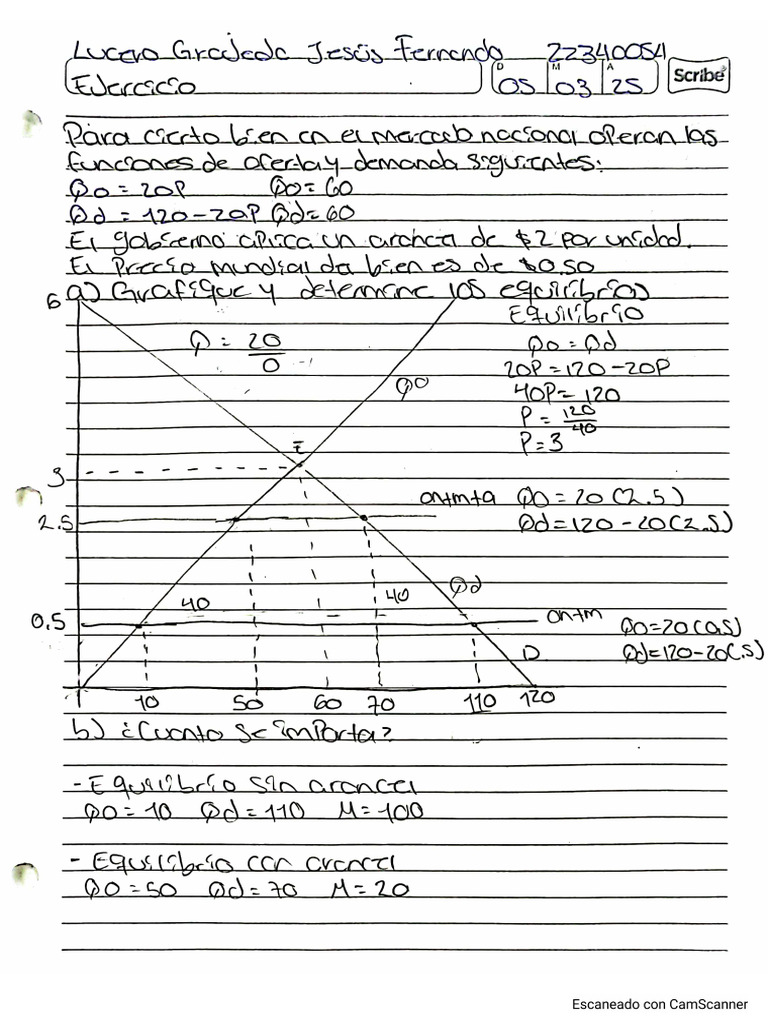 Lucero Grajeda Jesús Fernando 22340054
D M A
Ejercicio 05 03 25 Scribe
Para cierto bien en el mercado nacional operan las
funciones de oferta y demanda siguientes:
Qo = 20P Qo = 60
Qd = 120 - 20P Qd = 60
El gobierno aplica un arancel de $2 por unidad.
El precio mundial da bien es de $0.50
a) Grafique y determine los equilibrios
6
Equilibrio
Q = 20/0
Qo = Qd
20P = 120 - 20P
Qo
40P = 120
P = 120/40
P = 3
E
3
on+m+a Qo = 20(2.5)
2.5
Qd = 120 - 20(2.5)
Qd
40 40
0.5
on+m
Qo = 20(0.5)
D Qd = 120 - 20(.5)
10 50 60 70 110 120
b) ¿Cuanto se importa?
- Equilibrio sin arancel
Qo = 10 Qd = 110 M = 100
- Equilibrio con arancel
Qo = 50 Qd = 70 M = 20
Escaneado con CamScanner